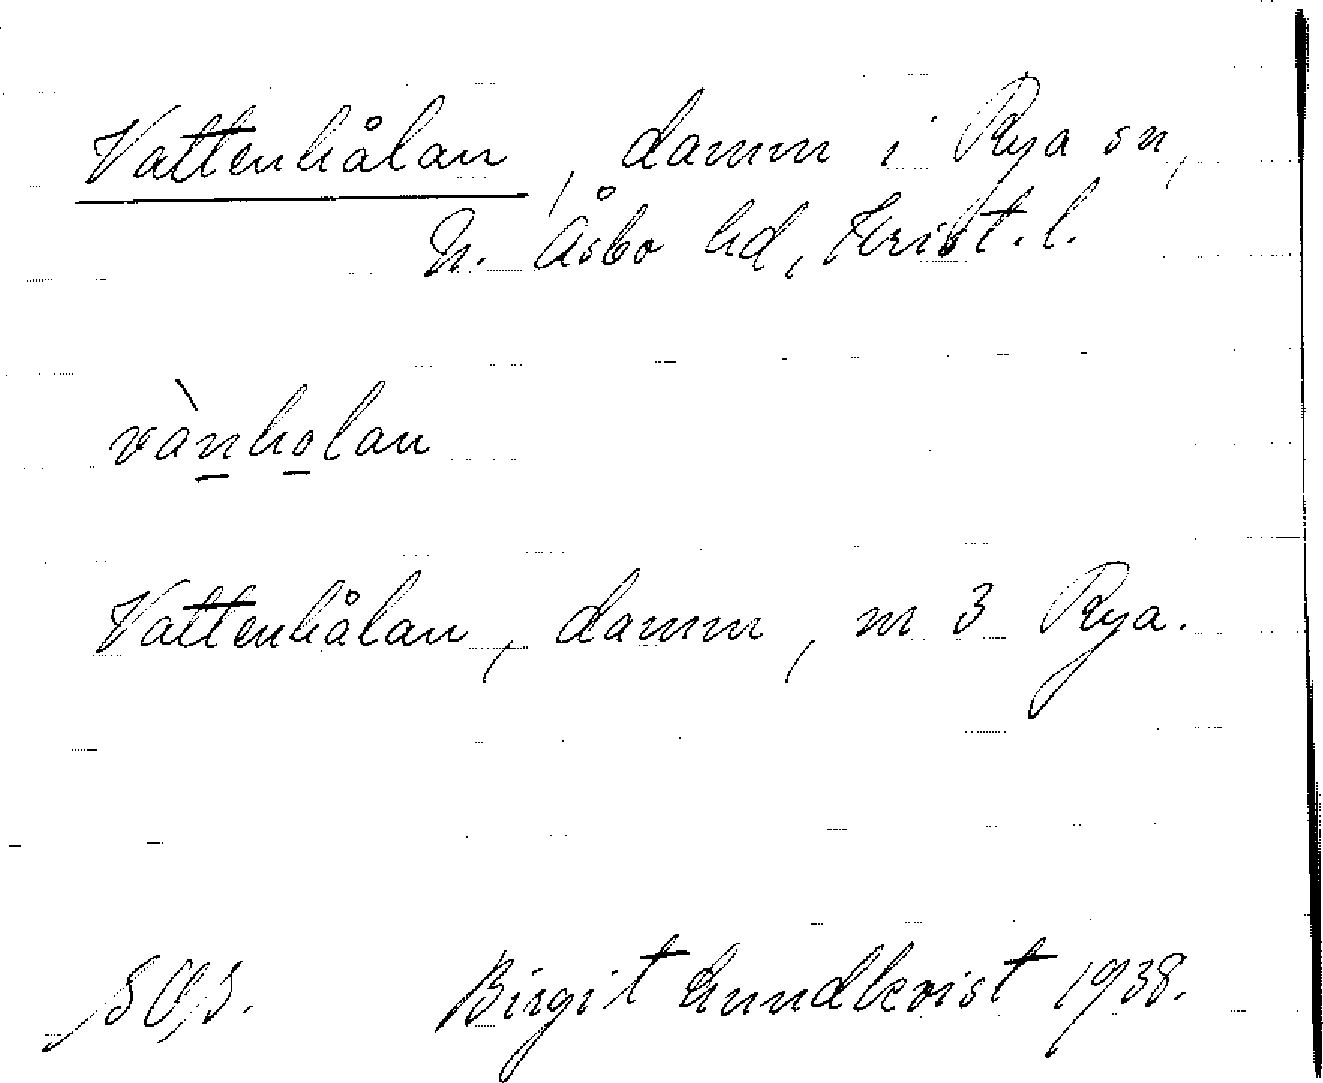 Vattenhålan, damm i Rya sn,
N. Åsbo hd, Krist. l.
vànholan
Vattenhålan, damm, m 3 Rya.
Birgit Lundkvist 1938.